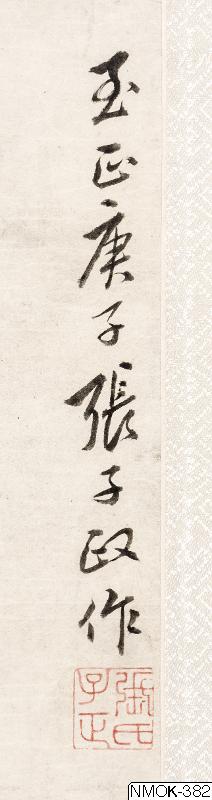 至正庚子張子政作
張氏
子正
NMOK-382